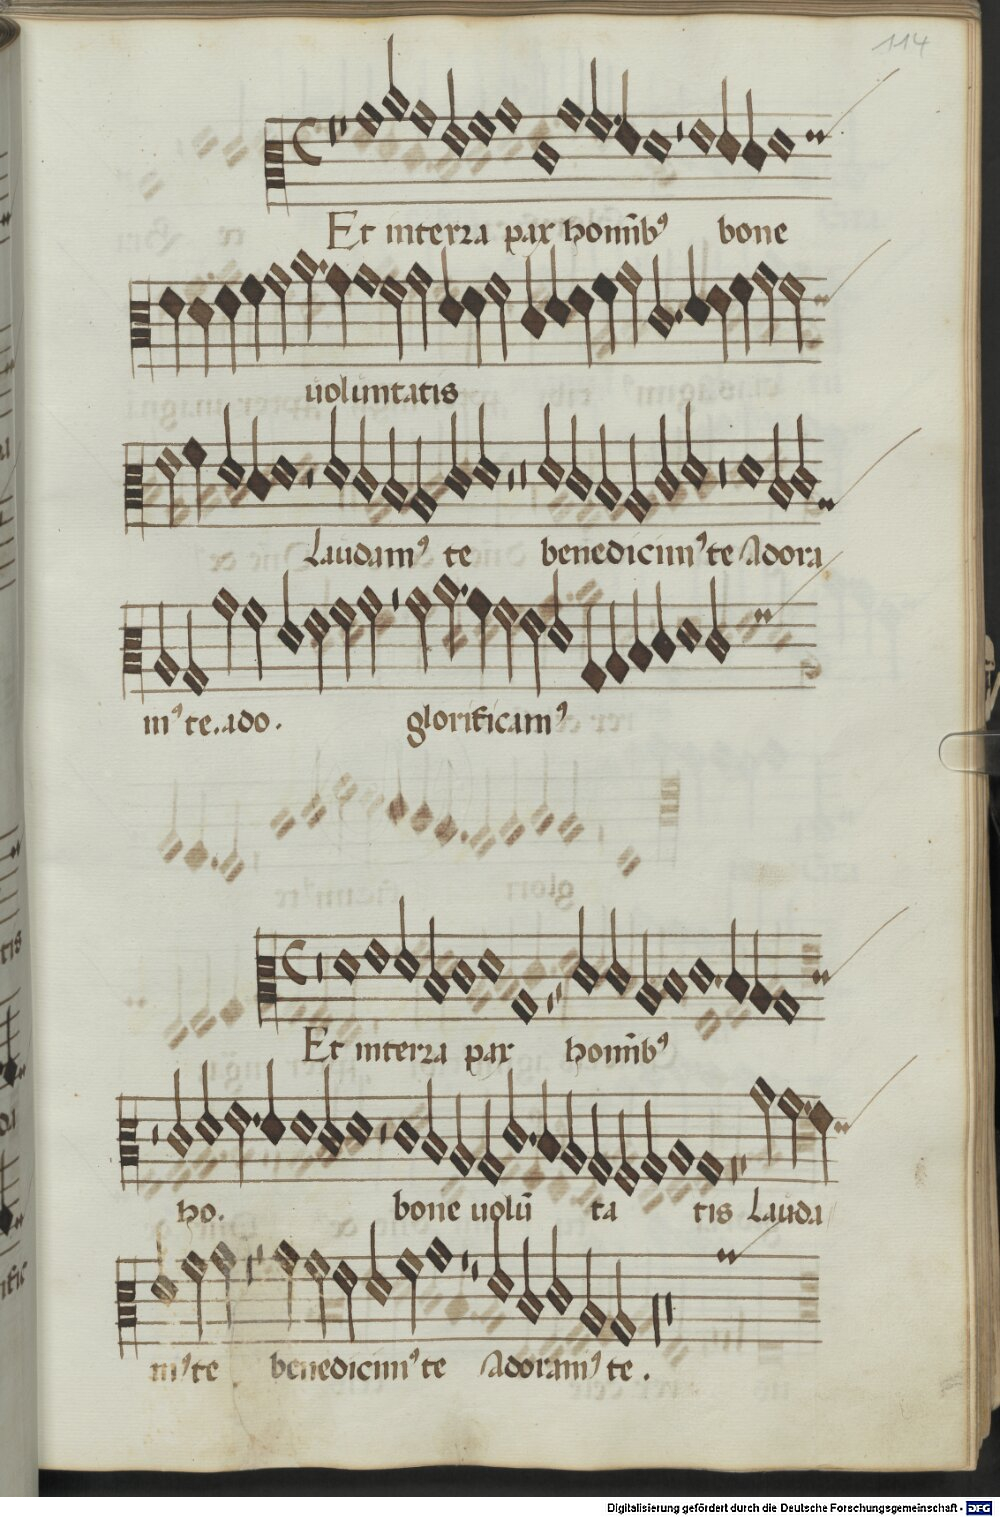 114
Et in terra pax hominibꝰ bone
uoluntatis
Laudamꝰ te benedicimꝰ te Adora
mꝰ te. ado. glorificamꝰ
Et in terra pax hominibꝰ
ho. bone uolū ta tis Lauda
mꝰ te benedicimꝰ te Adoramꝰ te.
Digitalisierung gefördert durch die Deutsche Forschungsgemeinschaft - DFG